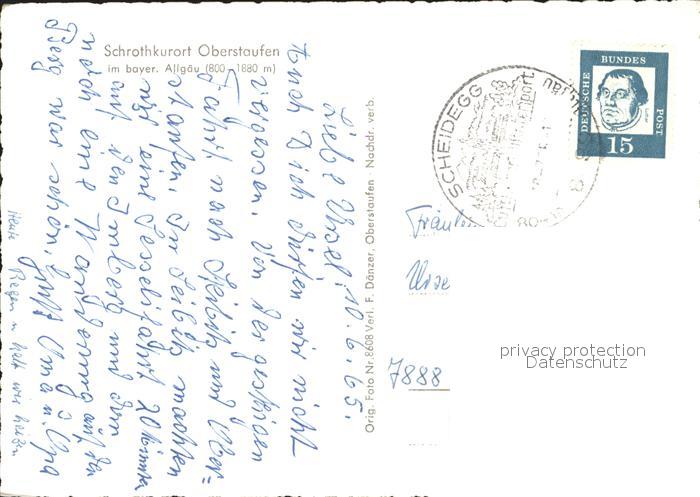 Schrothkurort Oberstaufen
im bayer. Allgäu (800–1880 m)
DEUTSCHE BUNDES POST
15
SCHEIDEGG
Liebe Ursel! 10.6.65.
Auch Dich dürfen wir nicht
vergessen. Von der gestrigen
Fahrt nach Seibitz und Ober=
staufen. In machten
wir eine Sesselfahrt 20 Minuten
auf den Imberg und dann
noch eine Wanderung auf den
Berg war schön. Gruß Oma u. Opa
Heute Regen u. kalt wir heizen
Orig. Foto Nr. 8608 Verl. F. Dänzer, Oberstaufen · Nachdr. verb.
Fräulein
Urse
7888
privacy protection
Datenschutz